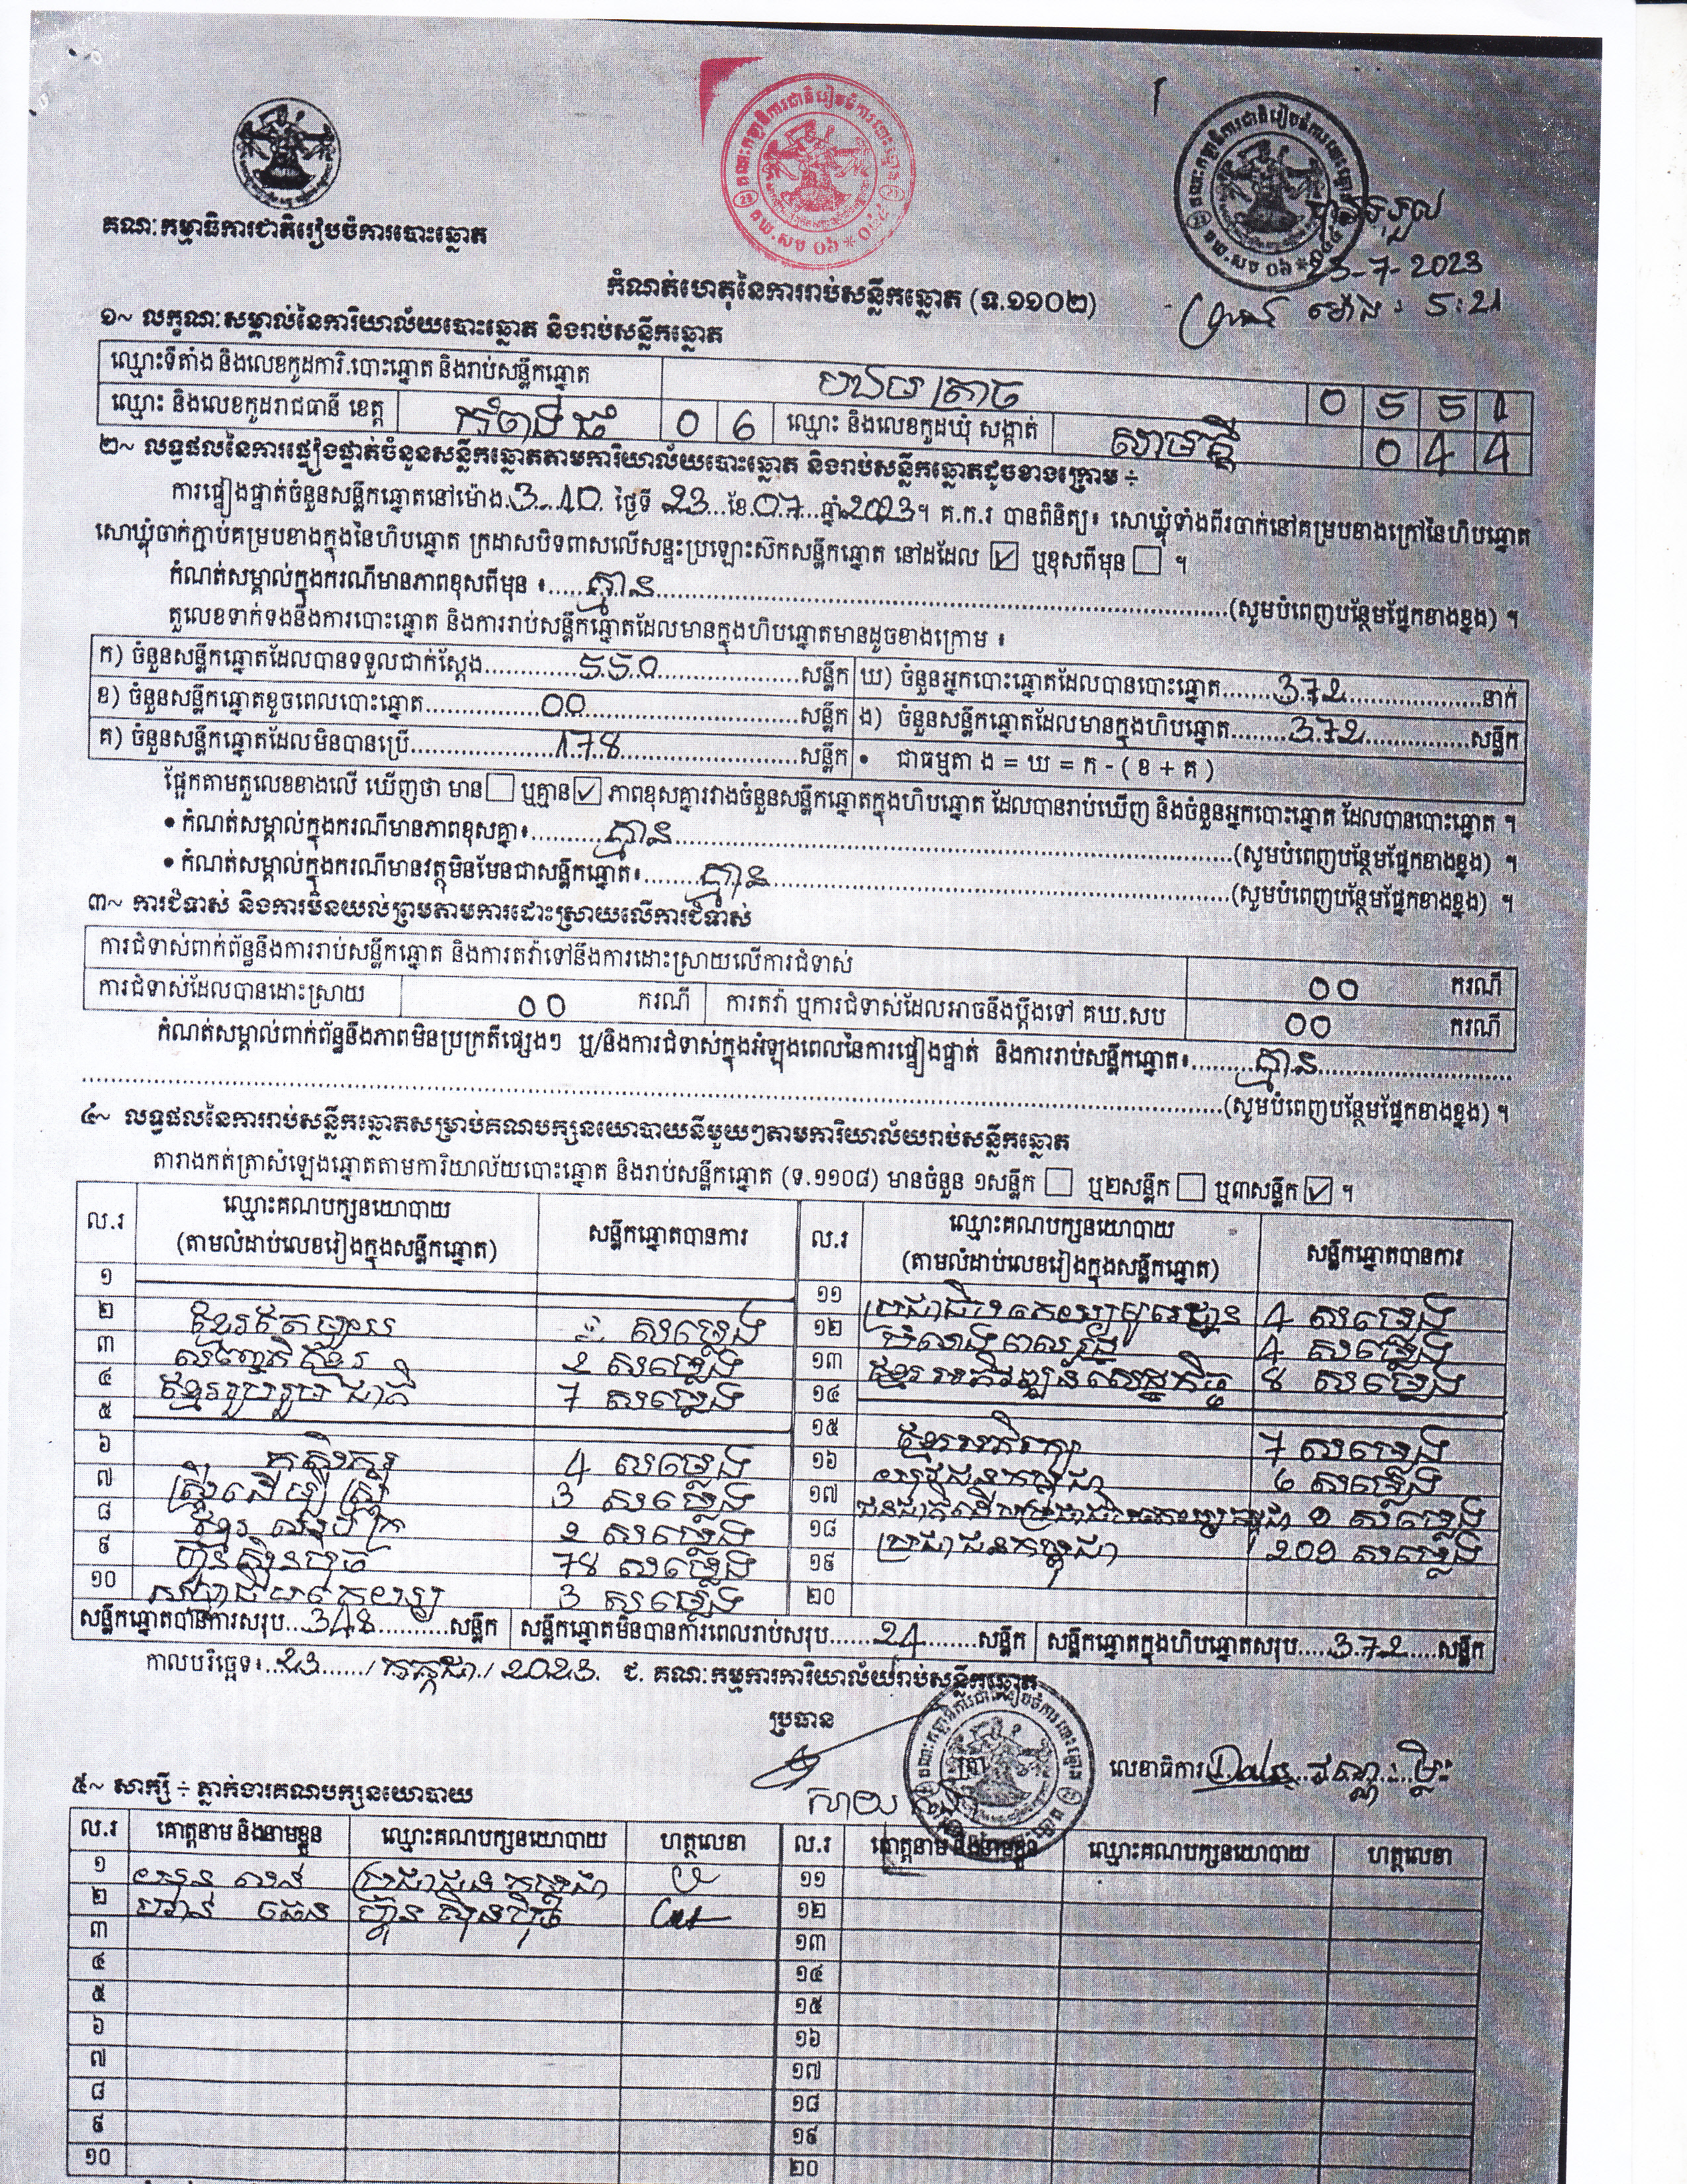 គណៈកម្មាធិការជាតិរៀបចំការបោះឆ្នោត
23-7-2023
ម៉ោង : 5:21
កំណត់ហេតុនៃការរាប់សន្លឹកឆ្នោត (ទ.១១០២)
១~ លក្ខណៈសម្គាល់នៃការិយាល័យបោះឆ្នោត និងរាប់សន្លឹកឆ្នោត
ឈ្មោះទីតាំង និងលេខកូដការិ.បោះឆ្នោត និងរាប់សន្លឹកឆ្នោត 0 5 5 1
ឈ្មោះ និងលេខកូដរាជធានី ខេត្ត កំពង់ធំ 0 6 ឈ្មោះ និងលេខកូដឃុំ សង្កាត់ សាមគ្គី 0 4 4
២~ លទ្ធផលនៃការផ្ទៀងផ្ទាត់ចំនួនសន្លឹកឆ្នោតតាមការិយាល័យបោះឆ្នោត និងរាប់សន្លឹកឆ្នោតដូចខាងក្រោម ÷
ការផ្ទៀងផ្ទាត់ចំនួនសន្លឹកឆ្នោតនៅម៉ោង 3 10 ថ្ងៃទី 23 ខែ 07 ឆ្នាំ 2023។ គ.ក.រ បានពិនិត្យ៖ សោឃ្លុំទាំងពីរចាក់នៅគម្របខាងក្រៅនៃហិបឆ្នោត
សោឃ្លុំចាក់ភ្ជាប់គម្របខាងក្នុងនៃហិបឆ្នោត ក្រដាសបិទពាសលើសន្ទះប្រឡោះស៊កសន្លឹកឆ្នោត នៅដដែល ☑ ឬខុសពីមុន ☐ ។
កំណត់សម្គាល់ក្នុងករណីមានភាពខុសពីមុន ៖ គ្មាន (សូមបំពេញបន្ថែមផ្នែកខាងខ្នង) ។
តួលេខទាក់ទងនឹងការបោះឆ្នោត និងការរាប់សន្លឹកឆ្នោតដែលមានក្នុងហិបឆ្នោតមានដូចខាងក្រោម ៖
ក) ចំនួនសន្លឹកឆ្នោតដែលបានទទួលជាក់ស្តែង 550 សន្លឹក ឃ) ចំនួនអ្នកបោះឆ្នោតដែលបានបោះឆ្នោត 372 នាក់
ខ) ចំនួនសន្លឹកឆ្នោតខូចពេលបោះឆ្នោត 00 សន្លឹក ង) ចំនួនសន្លឹកឆ្នោតដែលមានក្នុងហិបឆ្នោត 372 សន្លឹក
គ) ចំនួនសន្លឹកឆ្នោតដែលមិនបានប្រើ 178 សន្លឹក • ជាធម្មតា ង = ឃ = ក - ( ខ + គ )
ផ្អែកតាមតួលេខខាងលើ ឃើញថា មាន ☐ ឬគ្មាន ☑ ភាពខុសគ្នារវាងចំនួនសន្លឹកឆ្នោតក្នុងហិបឆ្នោត ដែលបានរាប់ឃើញ និងចំនួនអ្នកបោះឆ្នោត ដែលបានបោះឆ្នោត ។
• កំណត់សម្គាល់ក្នុងករណីមានភាពខុសគ្នា៖ គ្មាន (សូមបំពេញបន្ថែមផ្នែកខាងខ្នង) ។
• កំណត់សម្គាល់ក្នុងករណីមានវត្ថុមិនមែនជាសន្លឹកឆ្នោត៖ គ្មាន (សូមបំពេញបន្ថែមផ្នែកខាងខ្នង) ។
៣~ ការជំទាស់ និងការមិនយល់ព្រមតាមការដោះស្រាយលើការជំទាស់
ការជំទាស់ពាក់ព័ន្ធនឹងការរាប់សន្លឹកឆ្នោត និងការតវ៉ាទៅនឹងការដោះស្រាយលើការជំទាស់ 00 ករណី
ការជំទាស់ដែលបានដោះស្រាយ 00 ករណី ការតវ៉ា ឬការជំទាស់ដែលអាចនឹងប្តឹងទៅ គឃ.សប 00 ករណី
កំណត់សម្គាល់ពាក់ព័ន្ធនឹងភាពមិនប្រក្រតីផ្សេងៗ ឬ/និងការជំទាស់ក្នុងអំឡុងពេលនៃការផ្ទៀងផ្ទាត់ និងការរាប់សន្លឹកឆ្នោត៖ គ្មាន
(សូមបំពេញបន្ថែមផ្នែកខាងខ្នង) ។
៤~ លទ្ធផលនៃការរាប់សន្លឹកឆ្នោតសម្រាប់គណបក្សនយោបាយនីមួយៗតាមការិយាល័យរាប់សន្លឹកឆ្នោត
តារាងកត់ត្រាសំឡេងឆ្នោតតាមការិយាល័យបោះឆ្នោត និងរាប់សន្លឹកឆ្នោត (ទ.១១០៨) មានចំនួន ១សន្លឹក ☐ ឬ២សន្លឹក ☐ ឬ៣សន្លឹក ☑ ។
ល.រ ឈ្មោះគណបក្សនយោបាយ (តាមលំដាប់លេខរៀងក្នុងសន្លឹកឆ្នោត) សន្លឹកឆ្នោតបានការ ល.រ ឈ្មោះគណបក្សនយោបាយ (តាមលំដាប់លេខរៀងក្នុងសន្លឹកឆ្នោត) សន្លឹកឆ្នោតបានការ
១ ១១ ប្រជាធិបតេយ្យមូលដ្ឋាន 4 សម្លេង
២ ខ្មែរតែមួយ 2 សម្លេង ១២ កំលាំងពលរដ្ឋ 4 សម្លេង
៣ សញ្ជាតិខ្មែរ 2 សម្លេង ១៣ ខ្មែរអភិវឌ្ឍន៍សេដ្ឋកិច្ច 8 សម្លេង
៤ ខ្មែររួបរួមជាតិ 7 សម្លេង ១៤
៥ ១៥ ខ្មែរអភិរក្ស 7 សម្លេង
៦ កសិករ 4 សម្លេង ១៦ យុវជនកម្ពុជា 6 សម្លេង
៧ ស្ត្រីដើម្បីស្ត្រី 3 សម្លេង ១៧ ជនជាតិដើមប្រជាធិបតេយ្យកម្ពុជា 1 សម្លេង
៨ ខ្មែរ 2 សម្លេង ១៨ ប្រជាជនកម្ពុជា 201 សម្លេង
៩ ហ៊្វុនស៊ិនប៉ិច 78 សម្លេង ១៩
១០ សង្គមប្រជាធិបតេយ្យ 3 សម្លេង ២០
សន្លឹកឆ្នោតបានការសរុប 348 សន្លឹក សន្លឹកឆ្នោតមិនបានការពេលរាប់សរុប 24 សន្លឹក សន្លឹកឆ្នោតក្នុងហិបឆ្នោតសរុប 372 សន្លឹក
កាលបរិច្ឆេទ៖ 23 / កក្កដា / 2023 ជ. គណៈកម្មការការិយាល័យរាប់សន្លឹកឆ្នោត
ប្រធាន
លេខាធិការ
៥~ សាក្សី ÷ ភ្នាក់ងារគណបក្សនយោបាយ
ល.រ គោត្តនាម និងនាមខ្លួន ឈ្មោះគណបក្សនយោបាយ ហត្ថលេខា ល.រ គោត្តនាម និងនាមខ្លួន ឈ្មោះគណបក្សនយោបាយ ហត្ថលេខា
១ ប្រជាជនកម្ពុជា ១១
២ ហ៊្វុនស៊ិនប៉ិច ១២
៣ ១៣
៤ ១៤
៥ ១៥
៦ ១៦
៧ ១៧
៨ ១៨
៩ ១៩
១០ ២០